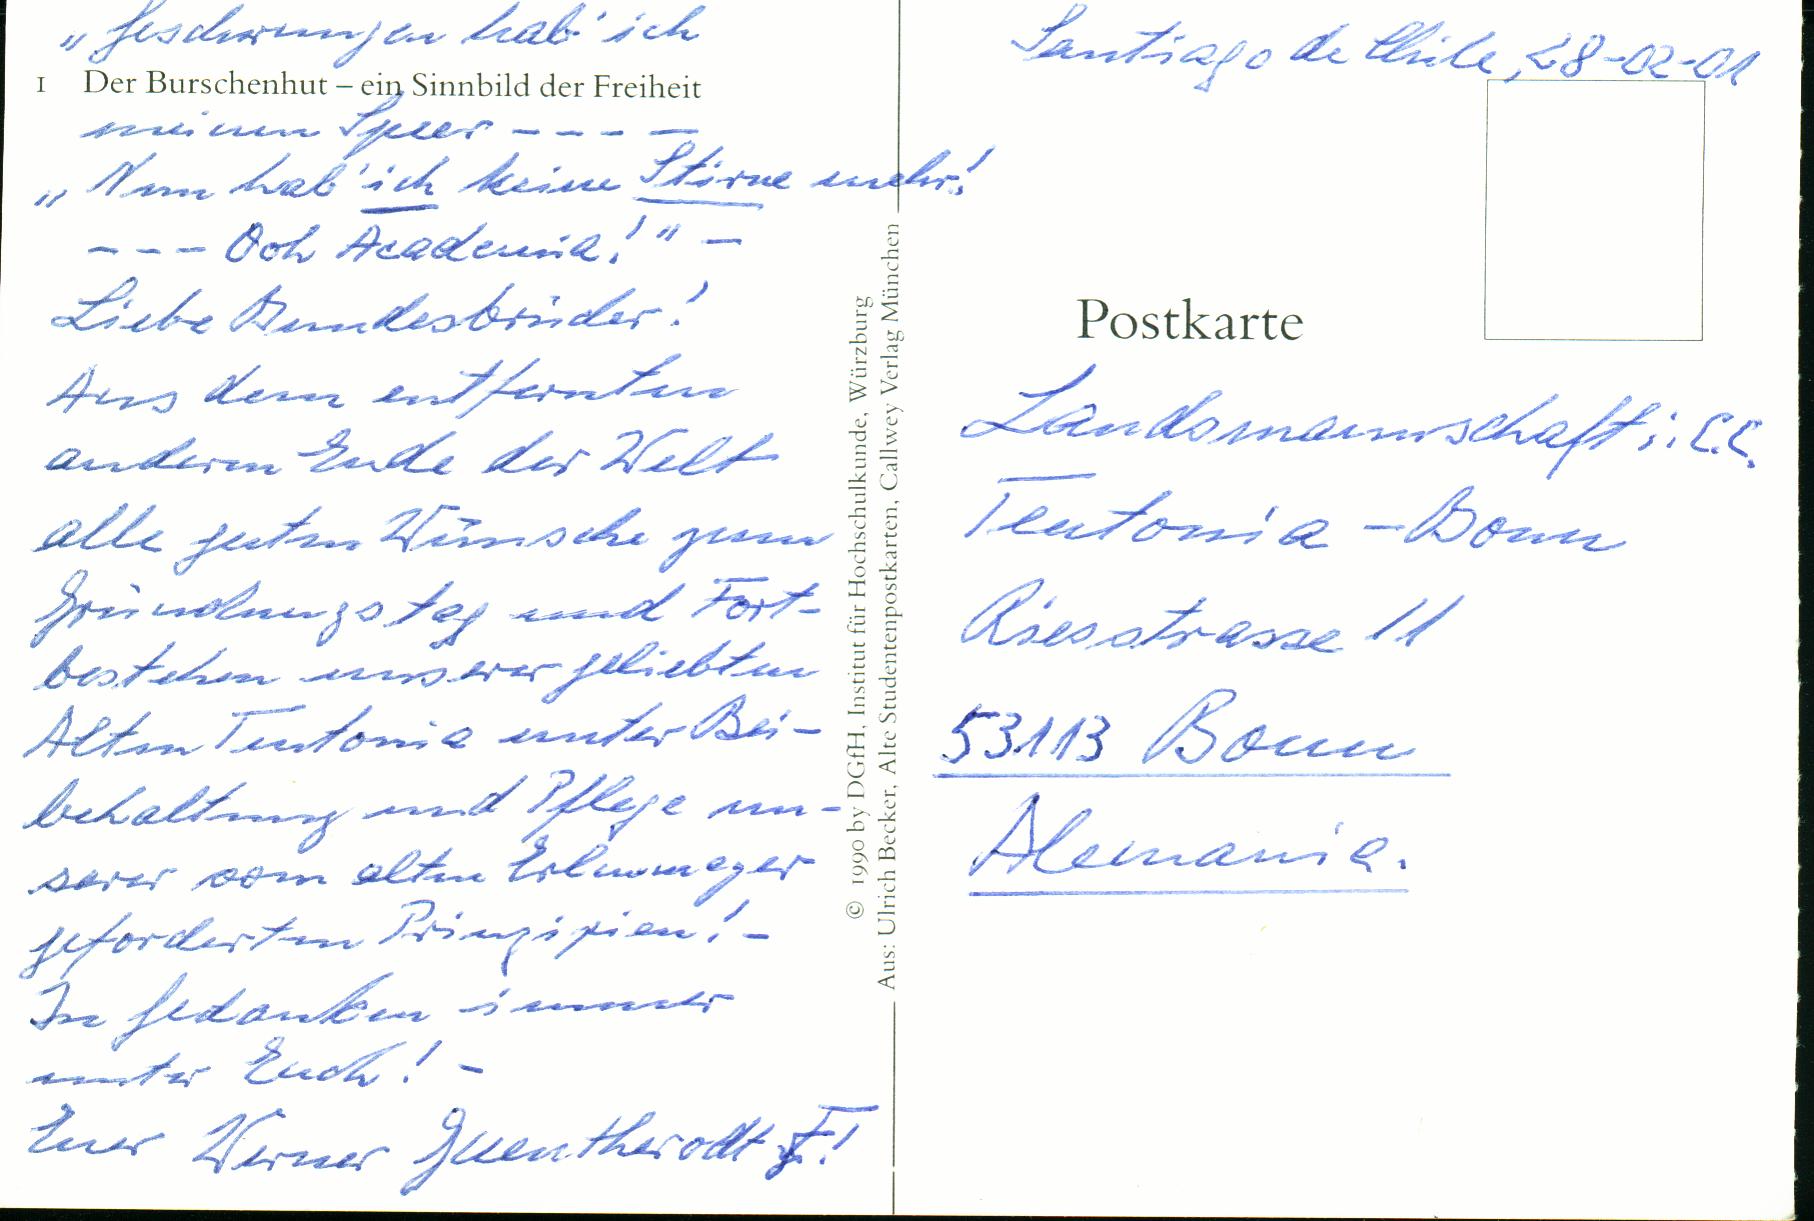 „Geschwungen hab' ich
1 Der Burschenhut – ein Sinnbild der Freiheit
meinen Speer - - - -
„Nun hab' ich keine Stirne mehr!
- - - Ooh Academia!" -
Liebe Bundesbrüder!
Aus dem entfernten
anderen Ende der Welt
alle guten Wünsche zum
Gründungstag und Fort-
bestehen unserer geliebten
Alten Teutonia unter Bei-
behaltung und Pflege un-
serer vom alten
geforderten Prinzipien! -
In Gedanken immer
unter Euch! -
Euer Werner Guentherodt
© 1990 by DGfH, Institut für Hochschulkunde, Würzburg
Aus: Ulrich Becker, Alte Studentenpostkarten, Callwey Verlag München
Santiago de Chile, 28-02-01
Postkarte
Landsmannschaft i. C.C.
Teutonia - Bonn
Riesstrasse 11
53113 Bonn
Alemania.